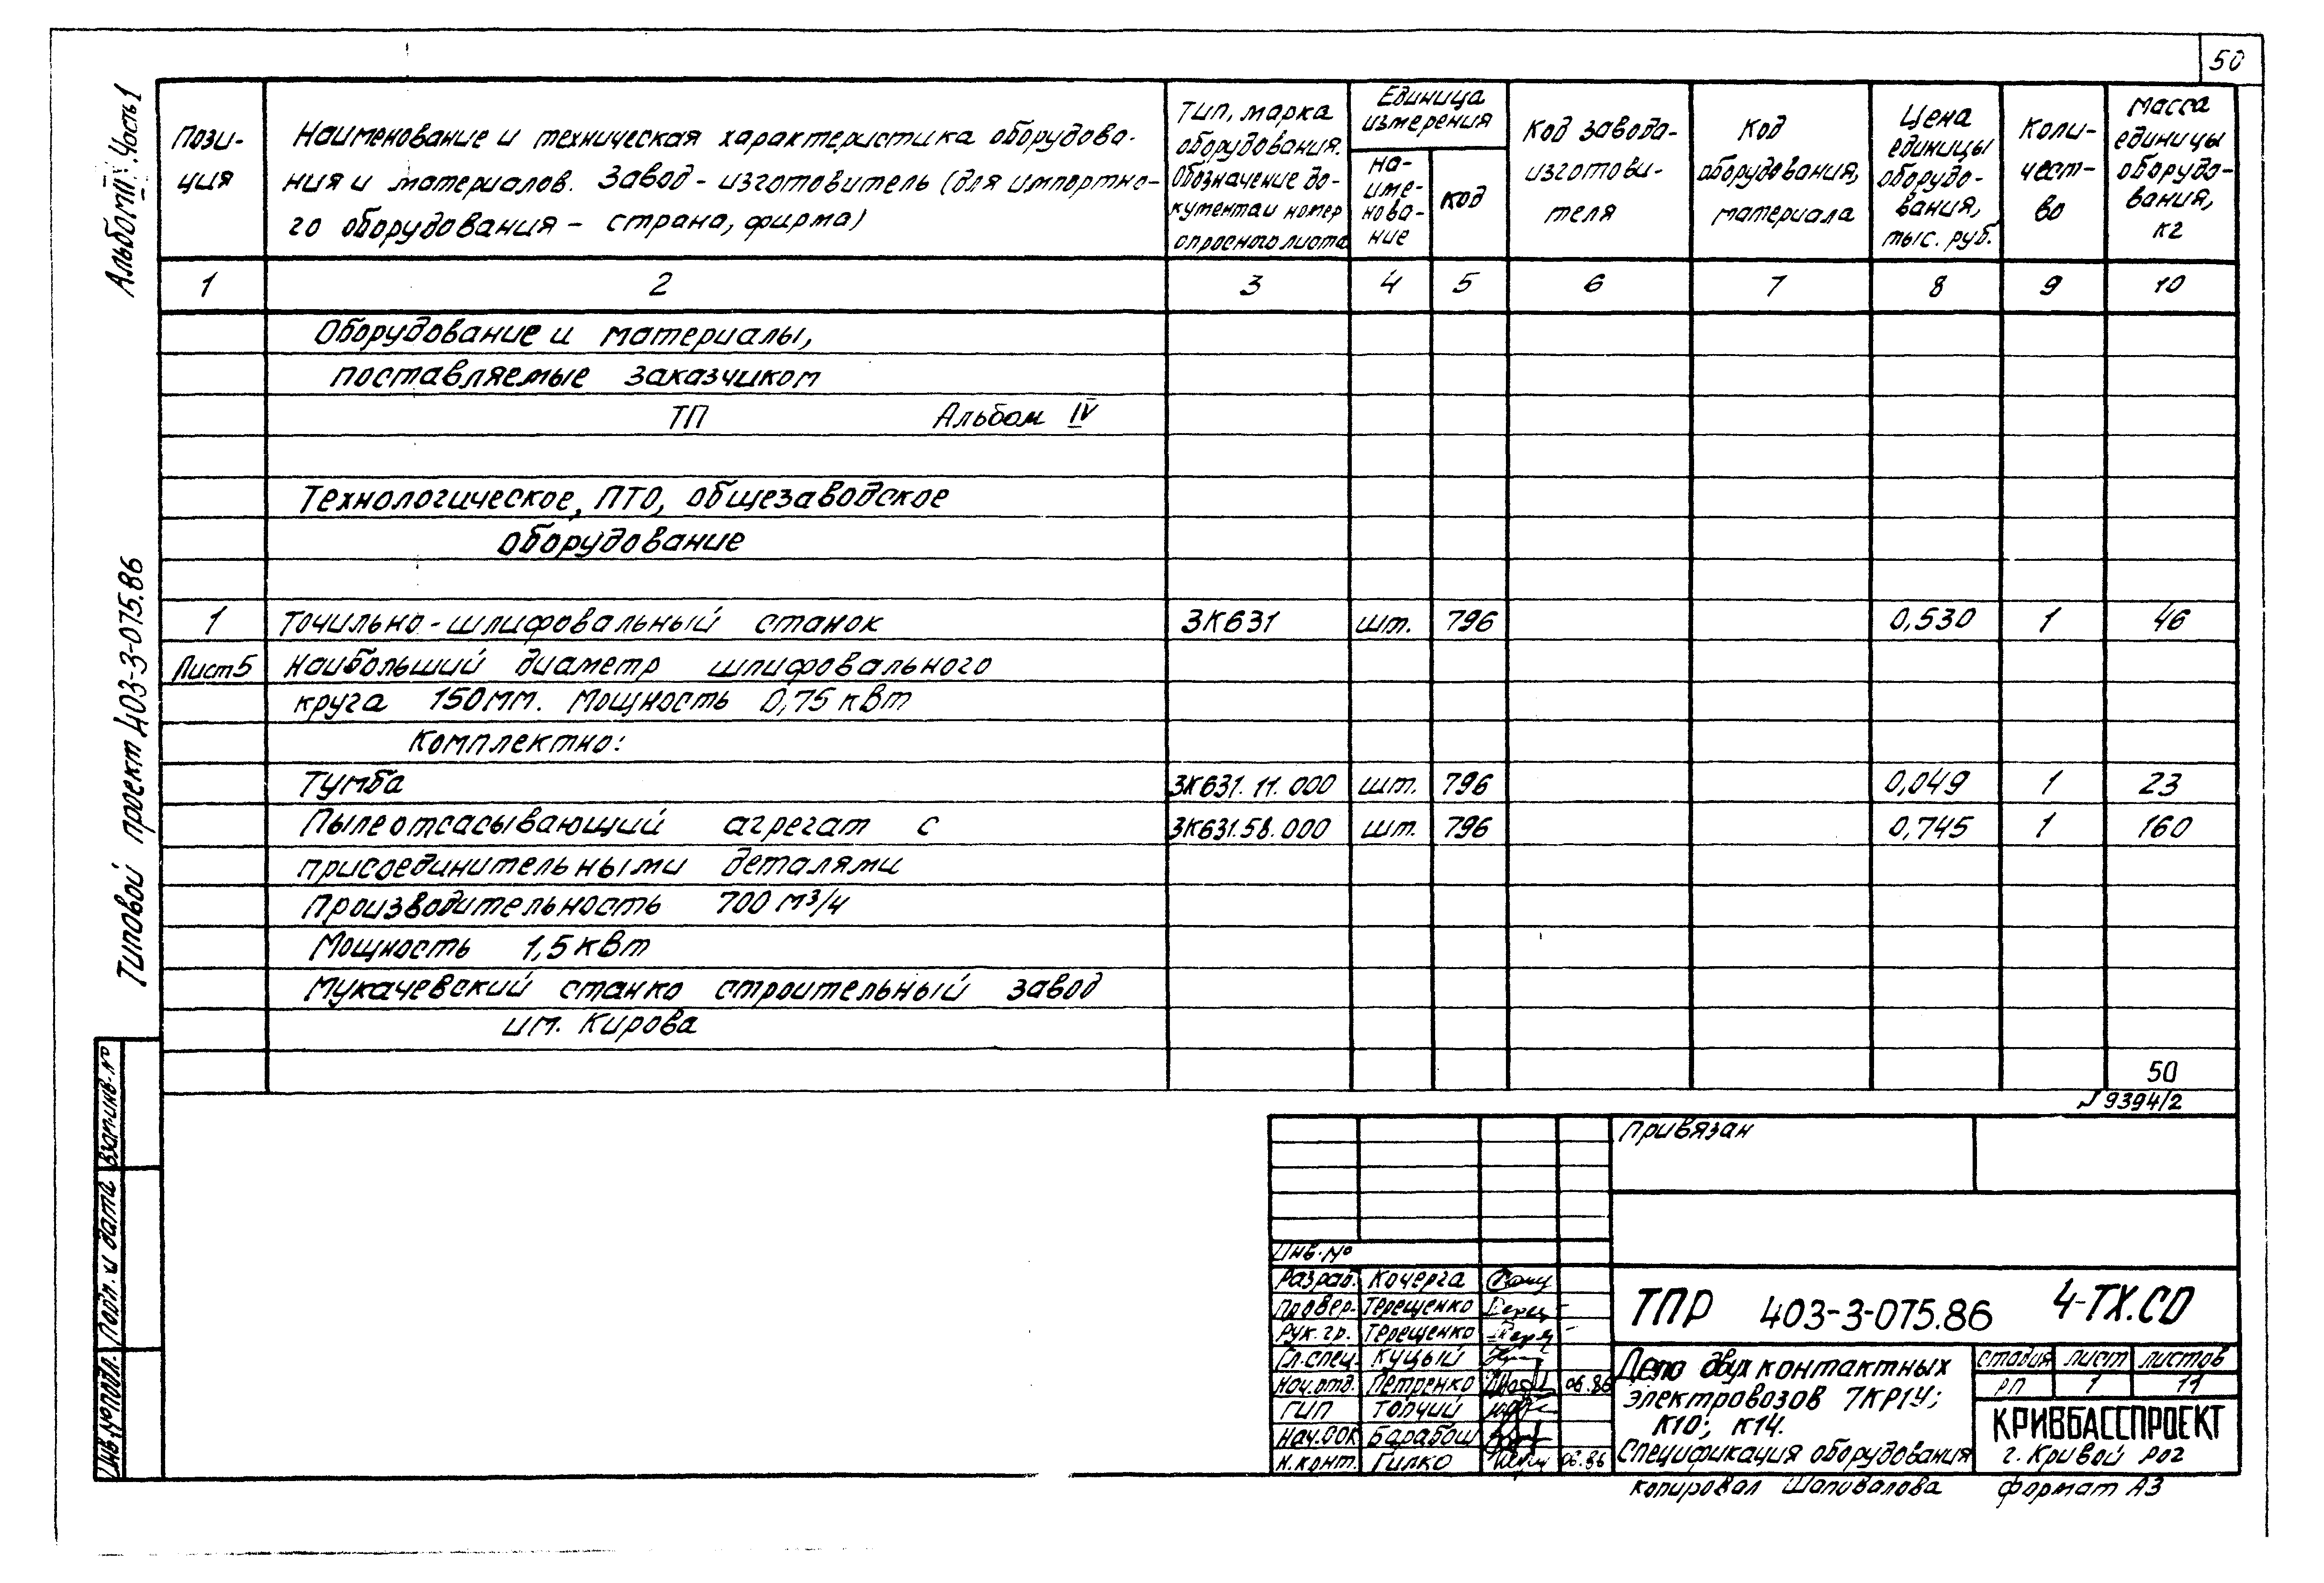 50
Альбом III Часть 1
Типовой проект 403-3-075.86
Взам.инв.№
Подп. и дата
Инв.№ подл.
Пози-
ция
Наименование и техническая характеристика оборудова-
ния и материалов. Завод-изготовитель (для импортно-
го оборудования - страна, фирма)
Тип, марка
оборудования.
Обозначение до-
кумента и номер
опросного листа
Единица
измерения
на-
име-
нова-
ние
код
Код завода-
изготови-
теля
Код
оборудования,
материала
Цена
единицы
оборудо-
вания,
тыс. руб.
Коли-
чест-
во
Масса
единицы
оборудо-
вания,
кг
1 2 3 4 5 6 7 8 9 10
Оборудование и материалы,
поставляемые заказчиком
ТП Альбом IV
Технологическое, ПТО, общезаводское
оборудование
1 Точильно-шлифовальный станок 3К631 шт. 796 0,530 1 46
Лист 5 Наибольший диаметр шлифовального
круга 150мм. Мощность 0,75 кВт
Комплектно:
Тумба 3К631.11.000 шт. 796 0,049 1 23
Пылеотсасывающий агрегат с 3К631.58.000 шт. 796 0,745 1 160
присоединительными деталями
Производительность 700 м³/ч
Мощность 1,5 кВт
Мукачевский станко строительный завод
им. Кирова
50
9394/2
Привязан
Инв.№
Разраб. Кочерга
Провер. Терещенко
Рук. гр. Терещенко
Гл.спец. Куцый
Нач.отд. Петренко 06.86
ГИП Топчий
Нач.ООК Барабаш
Н.конт. Гилко 06.86
ТПР 403-3-075.86 4-ТХ.СО
Депо двух контактных
электровозов 7КР1У;
К10; К14.
Спецификация оборудования
стадия лист листов
РП 1 11
КРИВБАССПРОЕКТ
г. Кривой Рог
Копировал Шаповалова формат А3